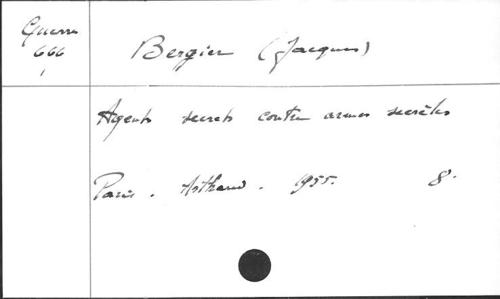 Guerre
666
Bergier (Jacques)
Agents secrets contre armes secrètes
Paris. Arthaud. 1955. 8.